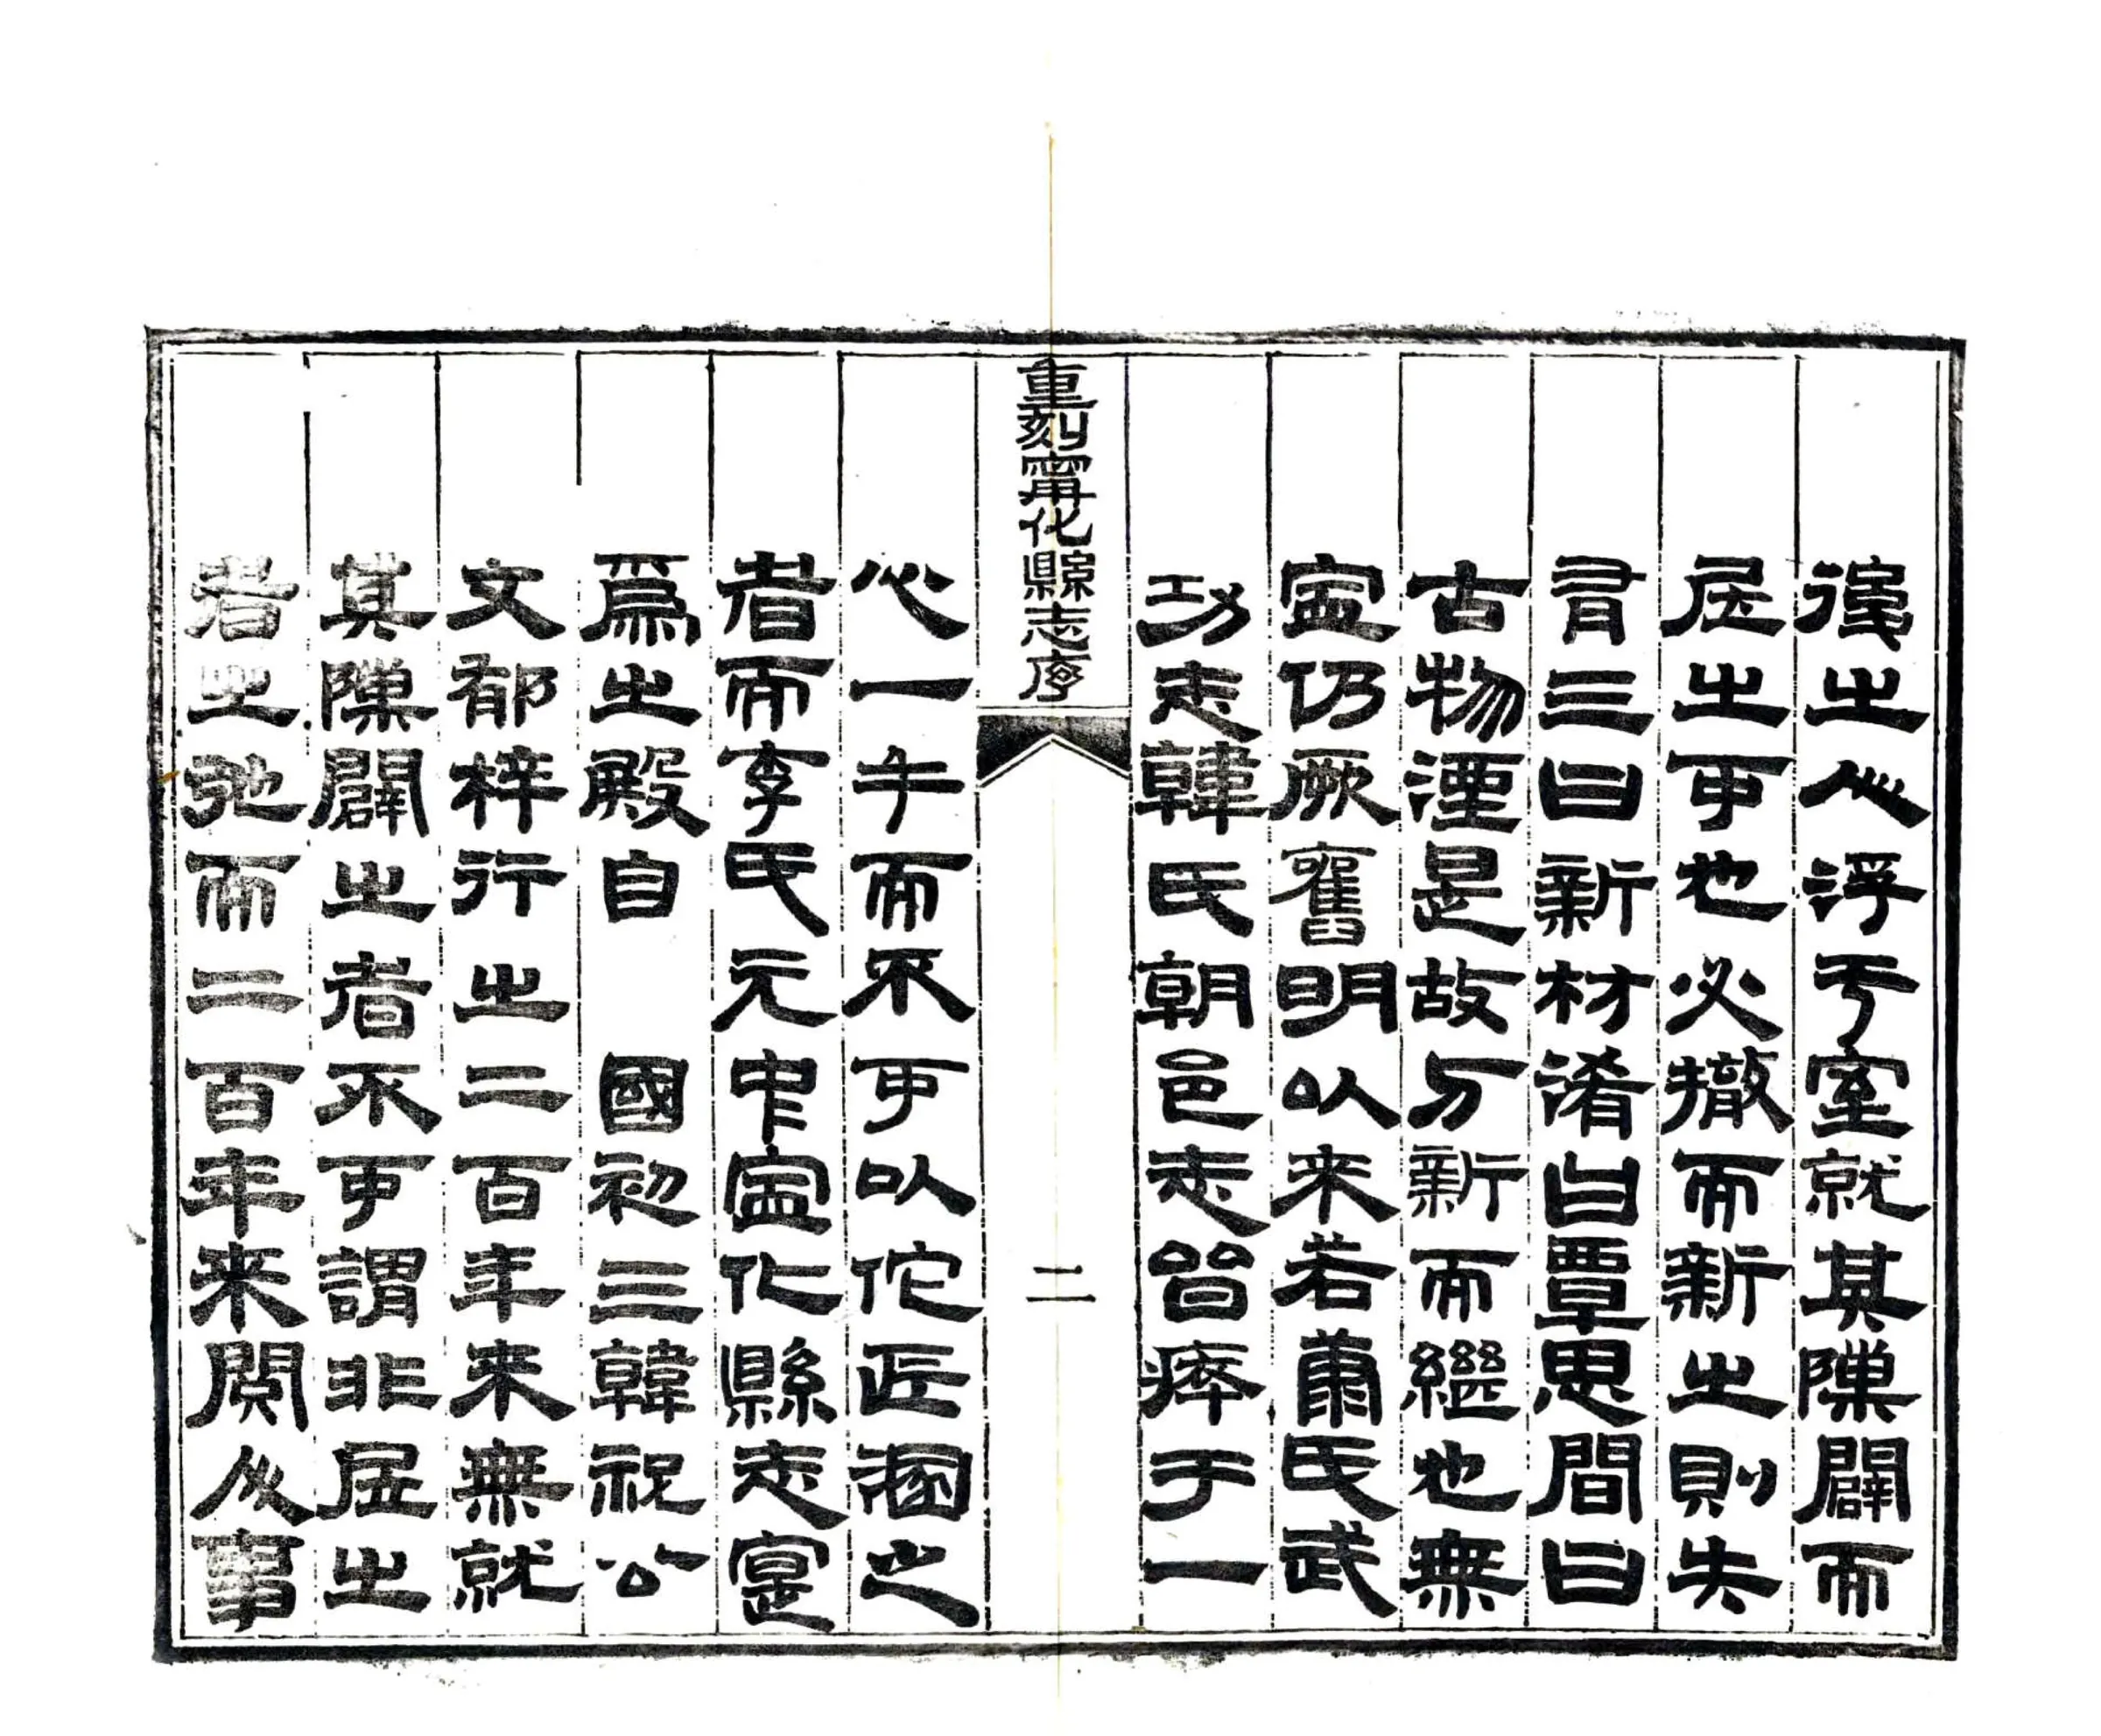 之心浮于室就其隟闢而
居之可也必撤而新之則失
有三曰新材淆曰覃思閒曰
古物湮是故与新而繼也無
寍仍厥舊明以来若蕭氏武
功志韓氏朝邑志皆瘁于一
重刻寧化縣志序
二
心一手而不可以佗匠溷之
者而李氏元中寍化縣志寔
爲之殿自 國初三韓祝公
文郁梓行之二百年来無就
其隟闢之者不可謂非居之
者之弛而二百年来事